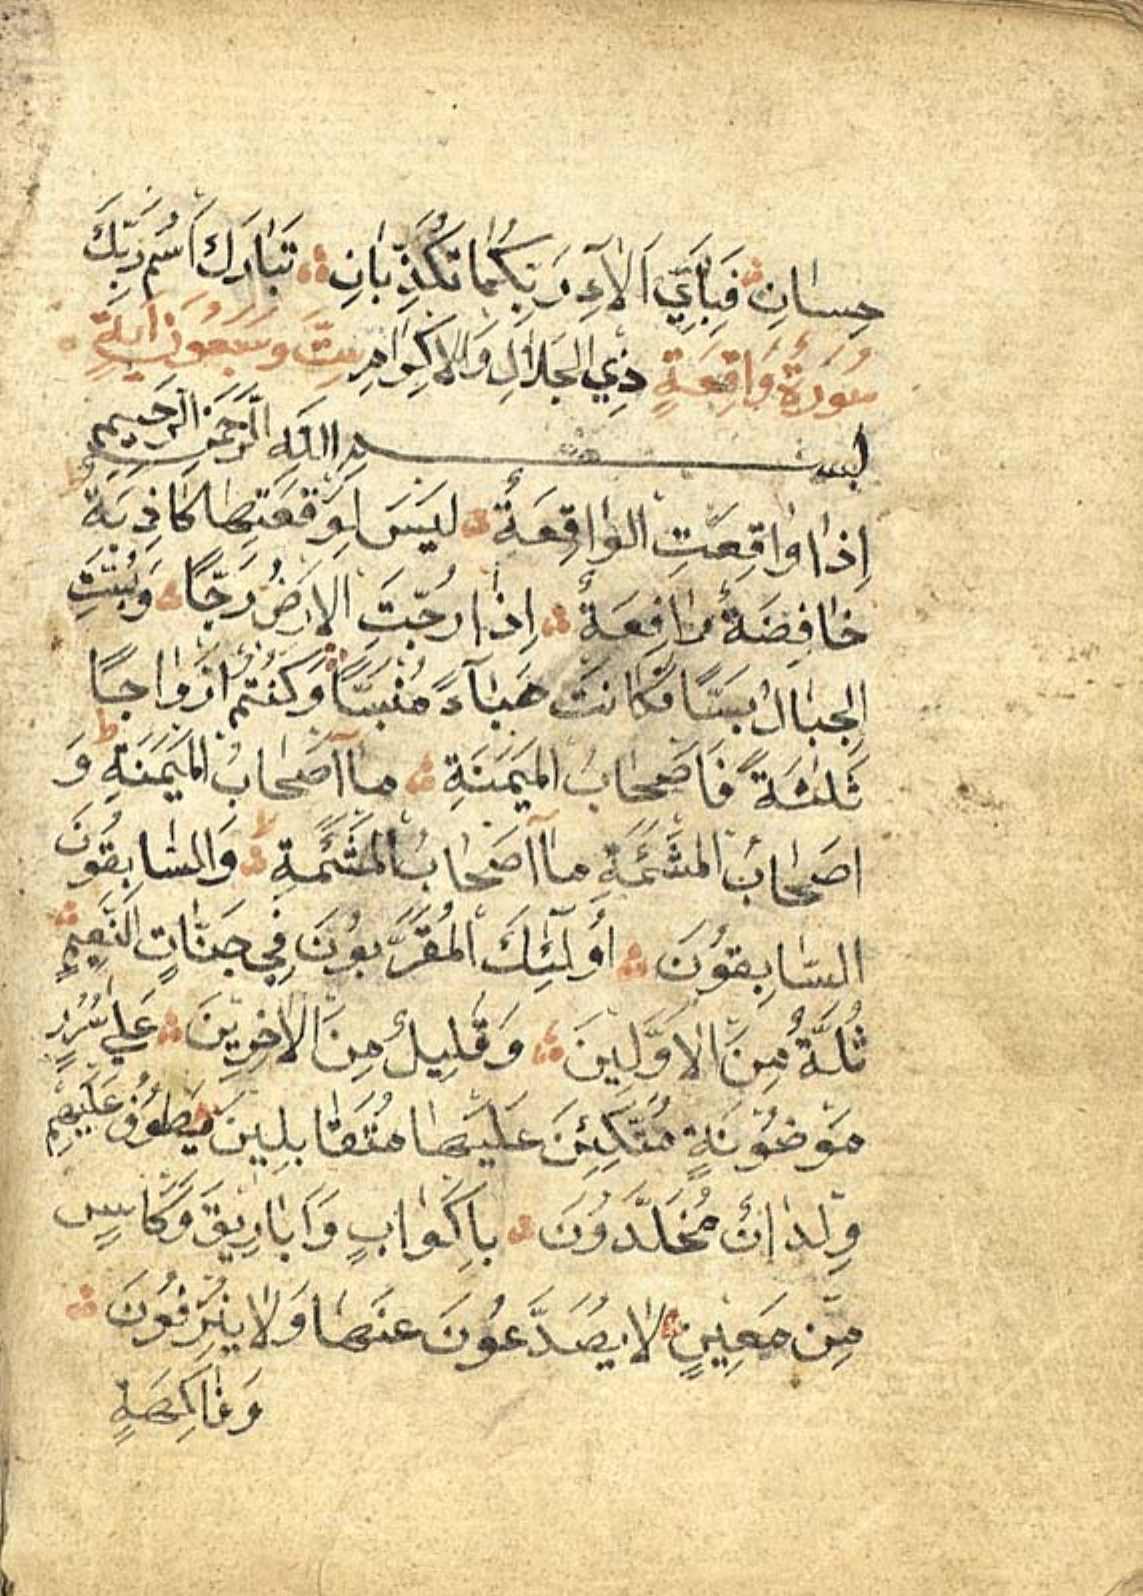 حِسٰانٍ فَبِاَيِّ اٰلَاۤءِ رَبِّكُمٰا تُكَذِّبٰانِ تَبٰارَكَ اسْمُ رَبِّكَ
سُورَةُ وَاقِعَةٍ ذِي الْجَلٰالِ وَالْاِكْرٰامِ سِتَّ وَسَبْعُونَ اٰيَةٍ
بِسْمِ اللّٰهِ الرَّحْمٰنِ الرَّحِيمِ
اِذٰا وٰاقِعَتِ الْوٰاقِعَةُ لَيْسَ لِوَقْعَتِهٰا كٰاذِبَةٌ
خٰافِضَةٌ رٰافِعَةٌ اِذٰا رُجَّتِ الْاَرْضُ رَجًّا وَبُسَّتِ
الْجِبٰالُ بَسًّا فَكٰانَتْ هَبٰاۤءً مُنْبَسًّا وَكُنْتُمْ اَزْوٰاجًا
ثَلٰثَةً فَاَصْحٰابُ الْمَيْمَنَةِ مٰاۤ اَصْحٰابُ الْمَيْمَنَةِ وَ
اَصْحٰابُ الْمَشْئَمَةِ مٰاۤ اَصْحٰابُ الْمَشْئَمَةِ وَالسّٰابِقُونَ
السّٰابِقُونَ اُولٰۤئِكَ الْمُقَرَّبُونَ فِي جَنّٰاتِ النَّعِيمِ
ثُلَّةٌ مِنَ الْاَوَّلِينَ وَقَلِيلٌ مِنَ الْاٰخِرِينَ عَلٰي سُرُرٍ
مَوْضُونَةٍ مُتَّكِئِنَ عَلَيْهٰا مُتَقٰابِلِينَ يَطُوفُ عَلَيْهِمْ
وِلْدٰانٌ مُخَلَّدُونَ بِاَكْوٰابٍ وَاَبٰارِيقَ وَكَاْسٍ
مِنْ مَعِينٍ لٰا يُصَدَّعُونَ عَنْهٰا وَلٰا يُنْزِفُونَ
وَفٰاكِهَةٍ